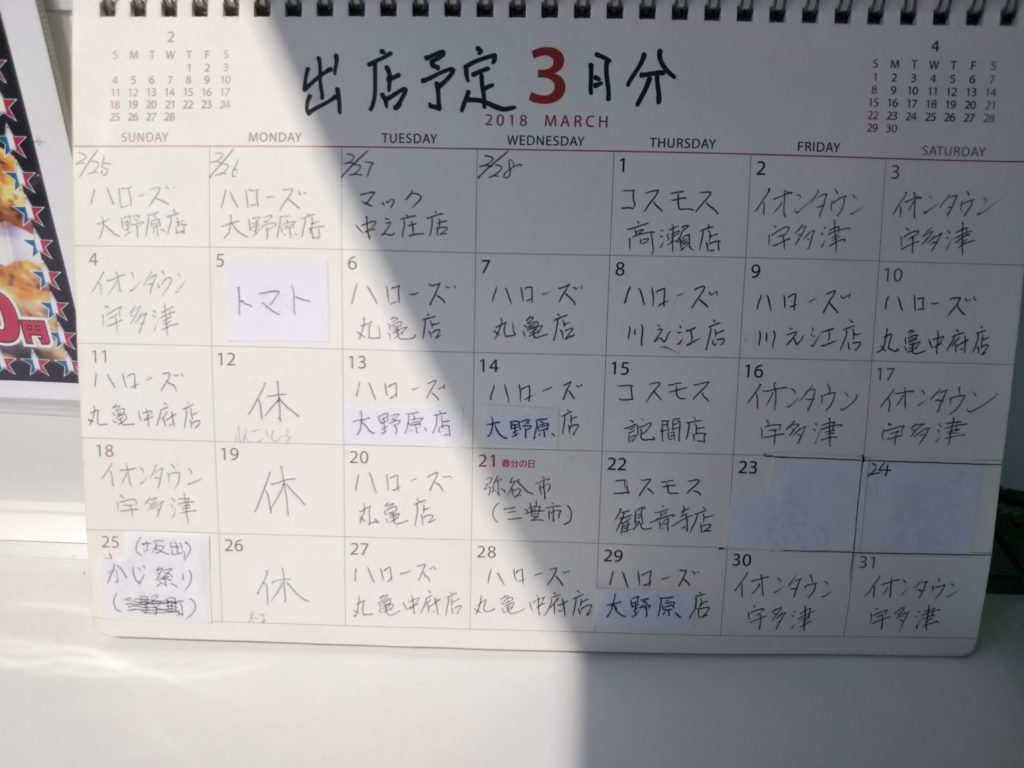 出店予定3月分
2018 MARCH
2
S M T W T F S
1 2 3
4 5 6 7 8 9 10
11 12 13 14 15 16 17
18 19 20 21 22 23 24
25 26 27 28
4
S M T W T F S
1 2 3 4 5 6 7
8 9 10 11 12 13 14
15 16 17 18 19 20 21
22 23 24 25 26 27 28
29 30
SUNDAY MONDAY TUESDAY WEDNESDAY THURSDAY FRIDAY SATURDAY
2/25
ハローズ
大野原店
2/26
ハローズ
大野原店
2/27
マック
中之庄店
2/28
1
コスモス
高瀬店
2
イオンタウン
宇多津
3
イオンタウン
宇多津
4
イオンタウン
宇多津
5
トマト
6
ハローズ
丸亀店
7
ハローズ
丸亀店
8
ハローズ
川之江店
9
ハローズ
川之江店
10
ハローズ
丸亀中府店
11
ハローズ
丸亀中府店
12
休
13
ハローズ
大野原店
14
ハローズ
大野原店
15
コスモス
詫間店
16
イオンタウン
宇多津
17
イオンタウン
宇多津
18
イオンタウン
宇多津
19
休
20
ハローズ
丸亀店
21 春分の日
弥谷市
(三豊市)
22
コスモス
観音寺店
23
24
25
(坂出)
かじ祭り
26
休
27
ハローズ
丸亀中府店
28
ハローズ
丸亀中府店
29
ハローズ
大野原店
30
イオンタウン
宇多津
31
イオンタウン
宇多津
0円